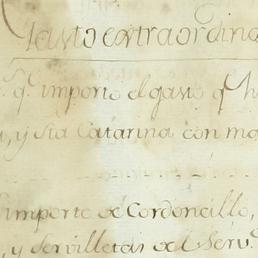 Gasto extraordino
q.^e importo el gasto q^e h
, y Sta Catarina con mo
importe de Cordoncillo,
, y Servilletas del Serv.